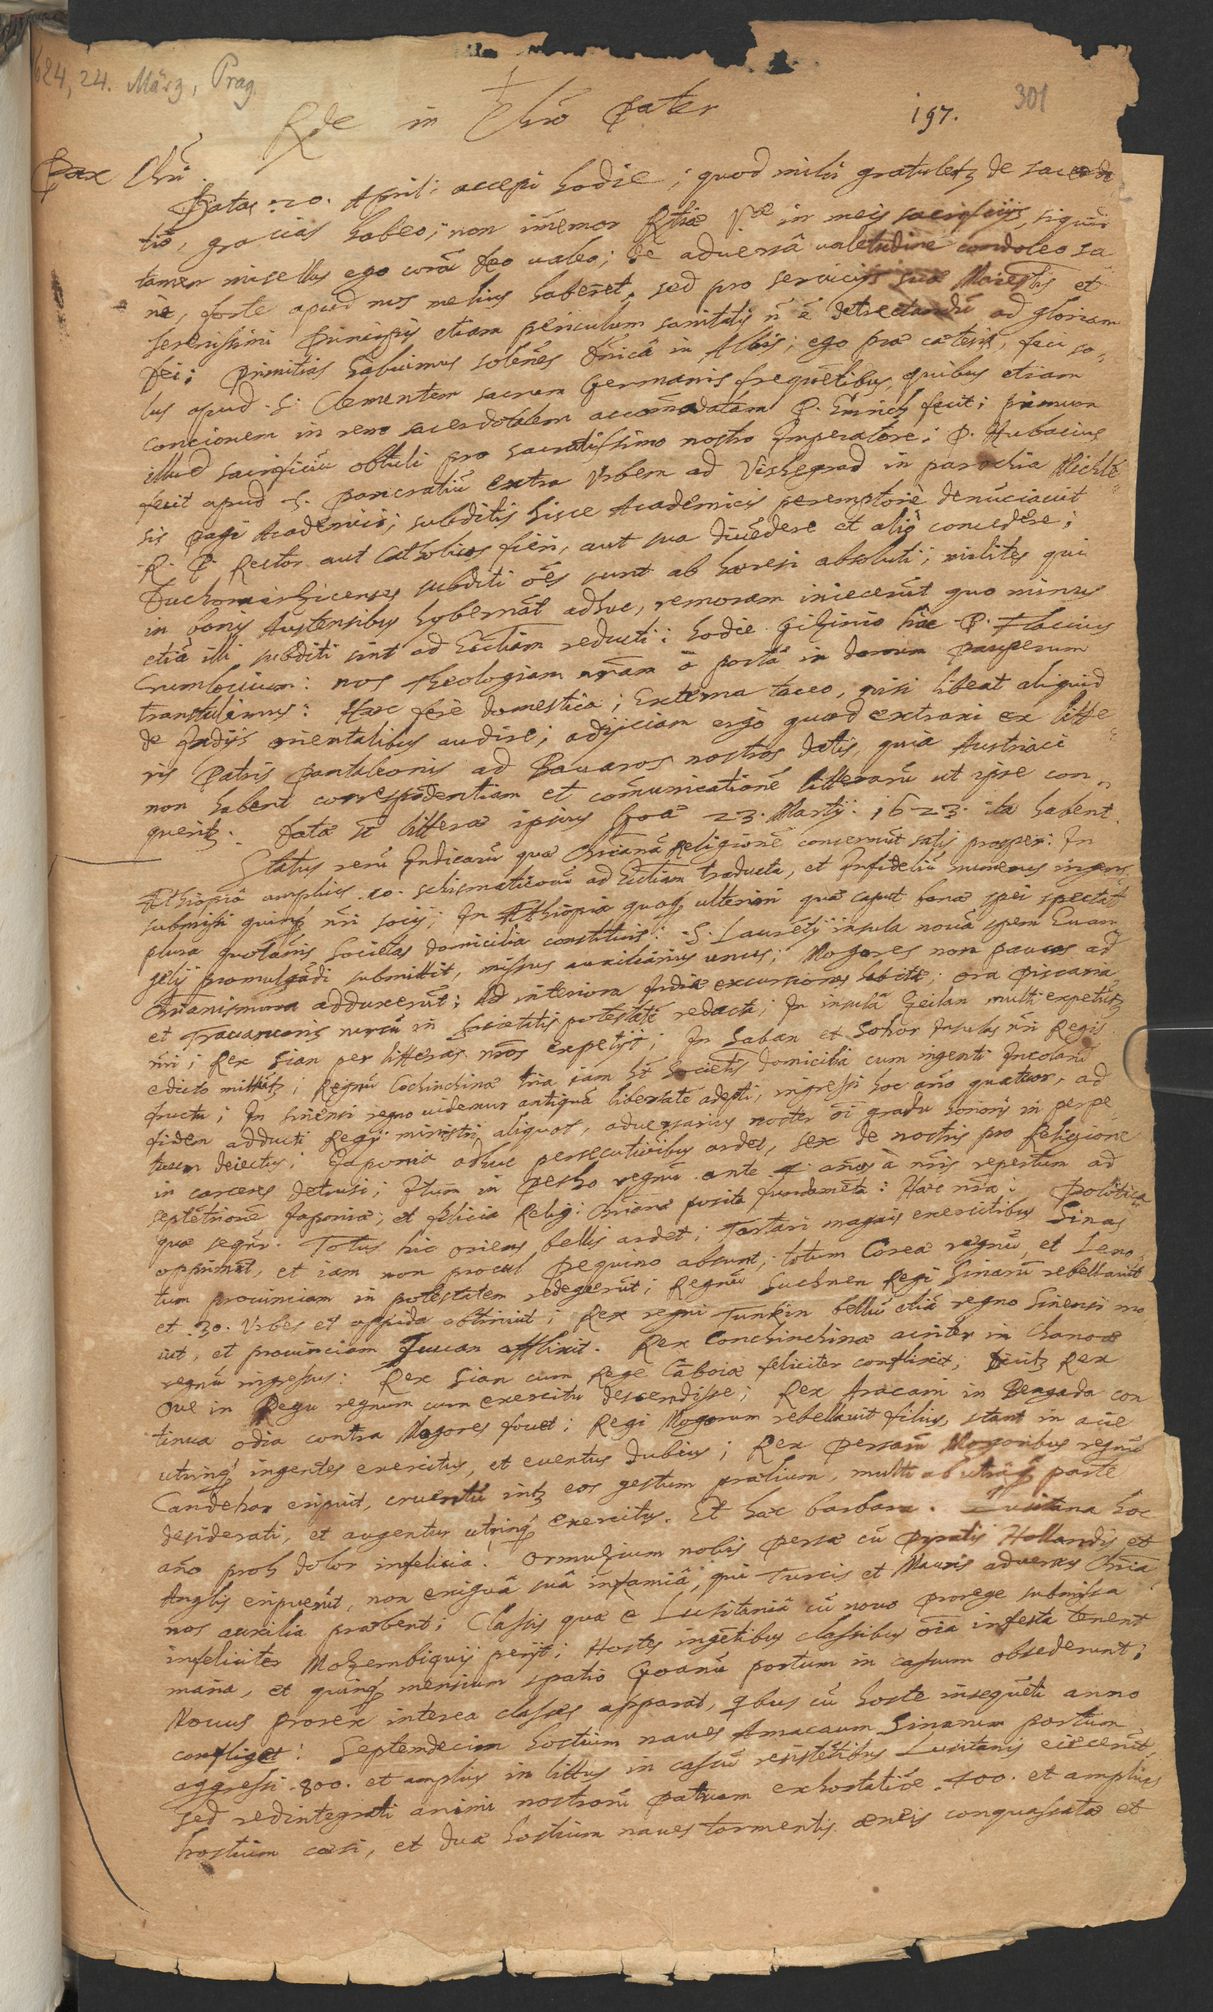 1624, 24. März, Prag.
301
197.
Rde in Chrō Pater
Pax Chri.
Datas 20. April: accepi hodie; quod mihi gratuletʒ de sacerdo
tio, gratias habeo; non im̄emor Rtiæ Væ in meis sacrificijs, siquid
tamen misellus ego corā Deo valeo; de adversâ valetudine condoleo sa
nè, forte apud nos melius haberet, sed pro servicijs suæ Maiestis et
serenissimi Principis etiam periculum sanitatis n̄ ē detrectandū ad gloriam
Dei; Primitias habuimus solen̄es Dn̄icâ in Albis; ego præ cæteris, feci so-
lus apud S. Clementem sacrum Germanis frequētibus, quibus etiam
concionem in reno sacerdotalem accom̄odatam P. fecit; primum
illud sacrificiū obtuli pro sacratissimo nostro Imperatore; P. Hubacius
fecit apud S. Pancratiū extra Urbem ad Vishegrad in parochia Michlē
sis pagi Academici; subditis hisce Academicis peremptoriè denūciavit
R. P. Rector aut Catholicos fieri, aut sua divēdere et aliò concedere;
subditi oēs sunt ab hæresi absoluti; milites qui
in bonis Austensibus hybernāt adhuc, remoram iniecerūt quo minus
etiā illi subditi sint ad Eccliam reducti; hodie Giʒinio hāc P. Flacius
Crumlovium: nos theologiam n̄ram à portâ in domum pauperum
transtulimus: Hæc ferè domestica; Externa taceo, nisi libeat aliquid
de Indijs orientalibus audire; adijciam ergo quæ extraxi ex litte
ris Patris Pantaleonis ad Bavaros nostros datis, quia Austriaci
non habent correspōdentiam et com̄unicationē litterarū ut ipse con
queritʒ. Datæ st̄ litteræ ipsius Goâ 23. Martij. 1623. ita habent.
Status rerū Indicarū quæ Chrianā Religionē concernūt satis prosper: In
Æthiopiâ amplius 20. schismaticorū ad Eccliam traducta, et Infideliū numerus ingens
submissi quinqʒ n̄ri socij; In Æthiopia quoqʒ ulteriori quæ caput bonæ spei spectat
plura quotān̄is Societas domicilia constituit; S. Laurētij insula novā spem Evan
gelij promulgādi submittit, missus auxiliarius unus; Mogores non paucos ad
Chrianismum adduxerūt; Ad interiora Indiæ excursiones habitæ; ora Piscaria
et Travancoris rursū in Societatis potestatē redacta; In insulâ Zeilan multi expetūtʒ
n̄ri; Rex Sian per litteras n̄ros expetijt; In Saban et Sohor Insulas n̄ri Regis
edicto mittūtʒ; Regnū Cochinchinæ tria iam ht̄ Societis domicilia cum ingenti Incolarū
fructu; In Sinensi regno videmur antiquā libertatē adepti, ingressi hoc an̄o quatuor, ad
fidem adducti Regij ministri aliquot, adversarius noster oī gradu honoris in perpe
tuum deiectus; Iaponia adhuc persecutionibus ardet, sex de nostris pro Religione
in carceres detrusi; Itum in Jesho regnū ante 4. an̄os à n̄ris repertum ad
septētrionē Iaponiæ; et felicia Relig: Chrianæ posita fundamēta: Hæc n̄ra; Politica
quæ seqūr. Totus hic oriens bellis ardet; Tartari magnis exercitibus Sinas
opprimāt, et iam non procul Pequino absunt; totum Corea regnū, et Leno
tum provinciam in potestatem redegerūt; Regnū Suchnen Regi Sinarū rebellavit
et 30. Urbes et oppida obtinuit; Rex regni Tunkin bellū etiā regno Sinensi mo
vit, et provinciam Juuan afflixit. Rex Conchinchinæ aciter in Chanoæ
regnū ingressus: Rex Sian cum Rege Cāboiæ feliciter conflixit; dicitʒ Rex
Ove in Pegu regnum cum exercitu descendisse; Rex Aracani in Bengada con
tinua odia contra Mogores fovet; Regi Mogorum rebellavit filius, stant in acie
utrinqʒ ingentes exercitus, et eventus dubius; Rex Persarū Mogoribus regnū
Candehar eripuit, cruentū intʒ eos gestum prælium, multi ab utrâqʒ parte
desiderati, et augentur utrinqʒ exercitus. Et hæc barbara. Lusitana hoc
an̄o proh dolor infelicia. Ormuʒium nobis Persæ cū Pyratis Hollandis et
Anglis eripuerūt, non exiguâ suâ infamiâ, qui Turcis et Mauris adversus Chria
nos auxilia præbent; Classis quæ e Lusitaniâ cū novo Prorege submissa
infeliciter Moʒembiquij perijt; Hostes ingētibus classibus oīa infesta tenent
maria, et quinqʒ mensium spatio Goanū portum in cassum obsederunt;
Novus prorex interea classes apparat, qbus cū hoste insequēti anno
confliget: Septendecim hostium naves Amacaum Sinarum portum
aggressi 800. et amplius in littus in cassū resistētibus Lusitanis eiecerūt,
sed redintegrati animi nostrorū Patrum exhortatiōe 400. et amplius
hostium cæsi, et duæ hostium naves tormentis æneis conquassatæ et